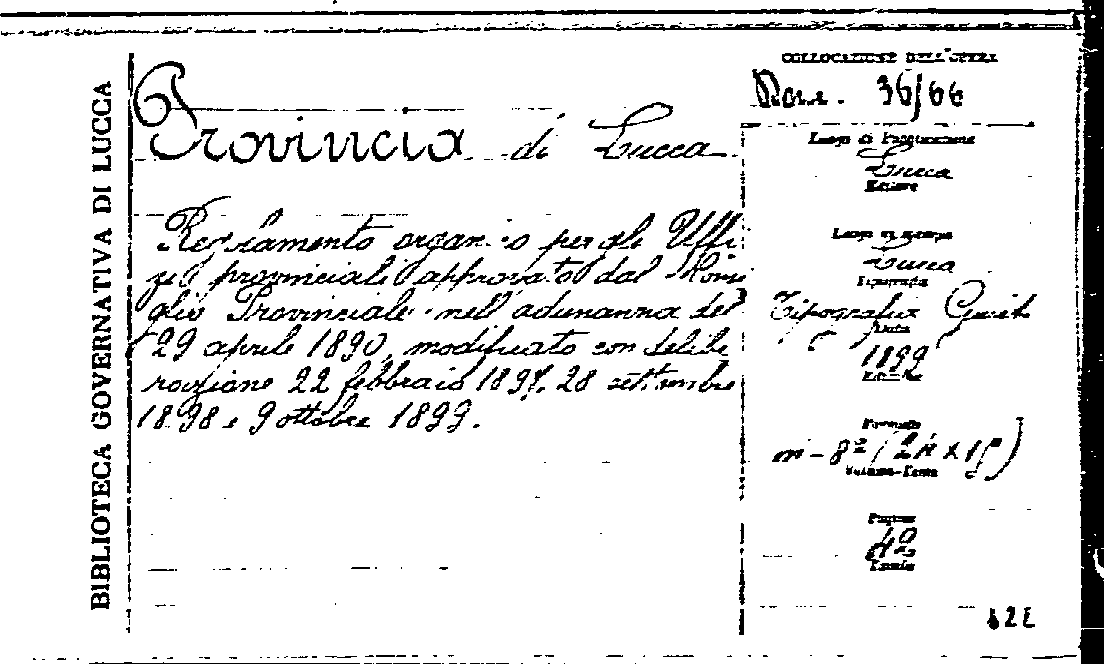 BIBLIOTECA GOVERNATIVA DI LUCCA
Provincia di Lucca
Regolamento organico per gli Uffi
zi provinciali approvato dal Consi
glio Provinciale nell'adunanza del
29 aprile 1890, modificato con delibe
razione 22 febbraio 1897, 28 settembre
1898 e 9 ottobre 1899.
COLLOCAZIONE DELL'OPERA
36/66
Luogo di Pubblicazione
Lucca
Editore
Luogo di stampa
Lucca
Tipografia
Tipografia
Data
1899
Formato
in-8º (24 x 15)
Pagine
42